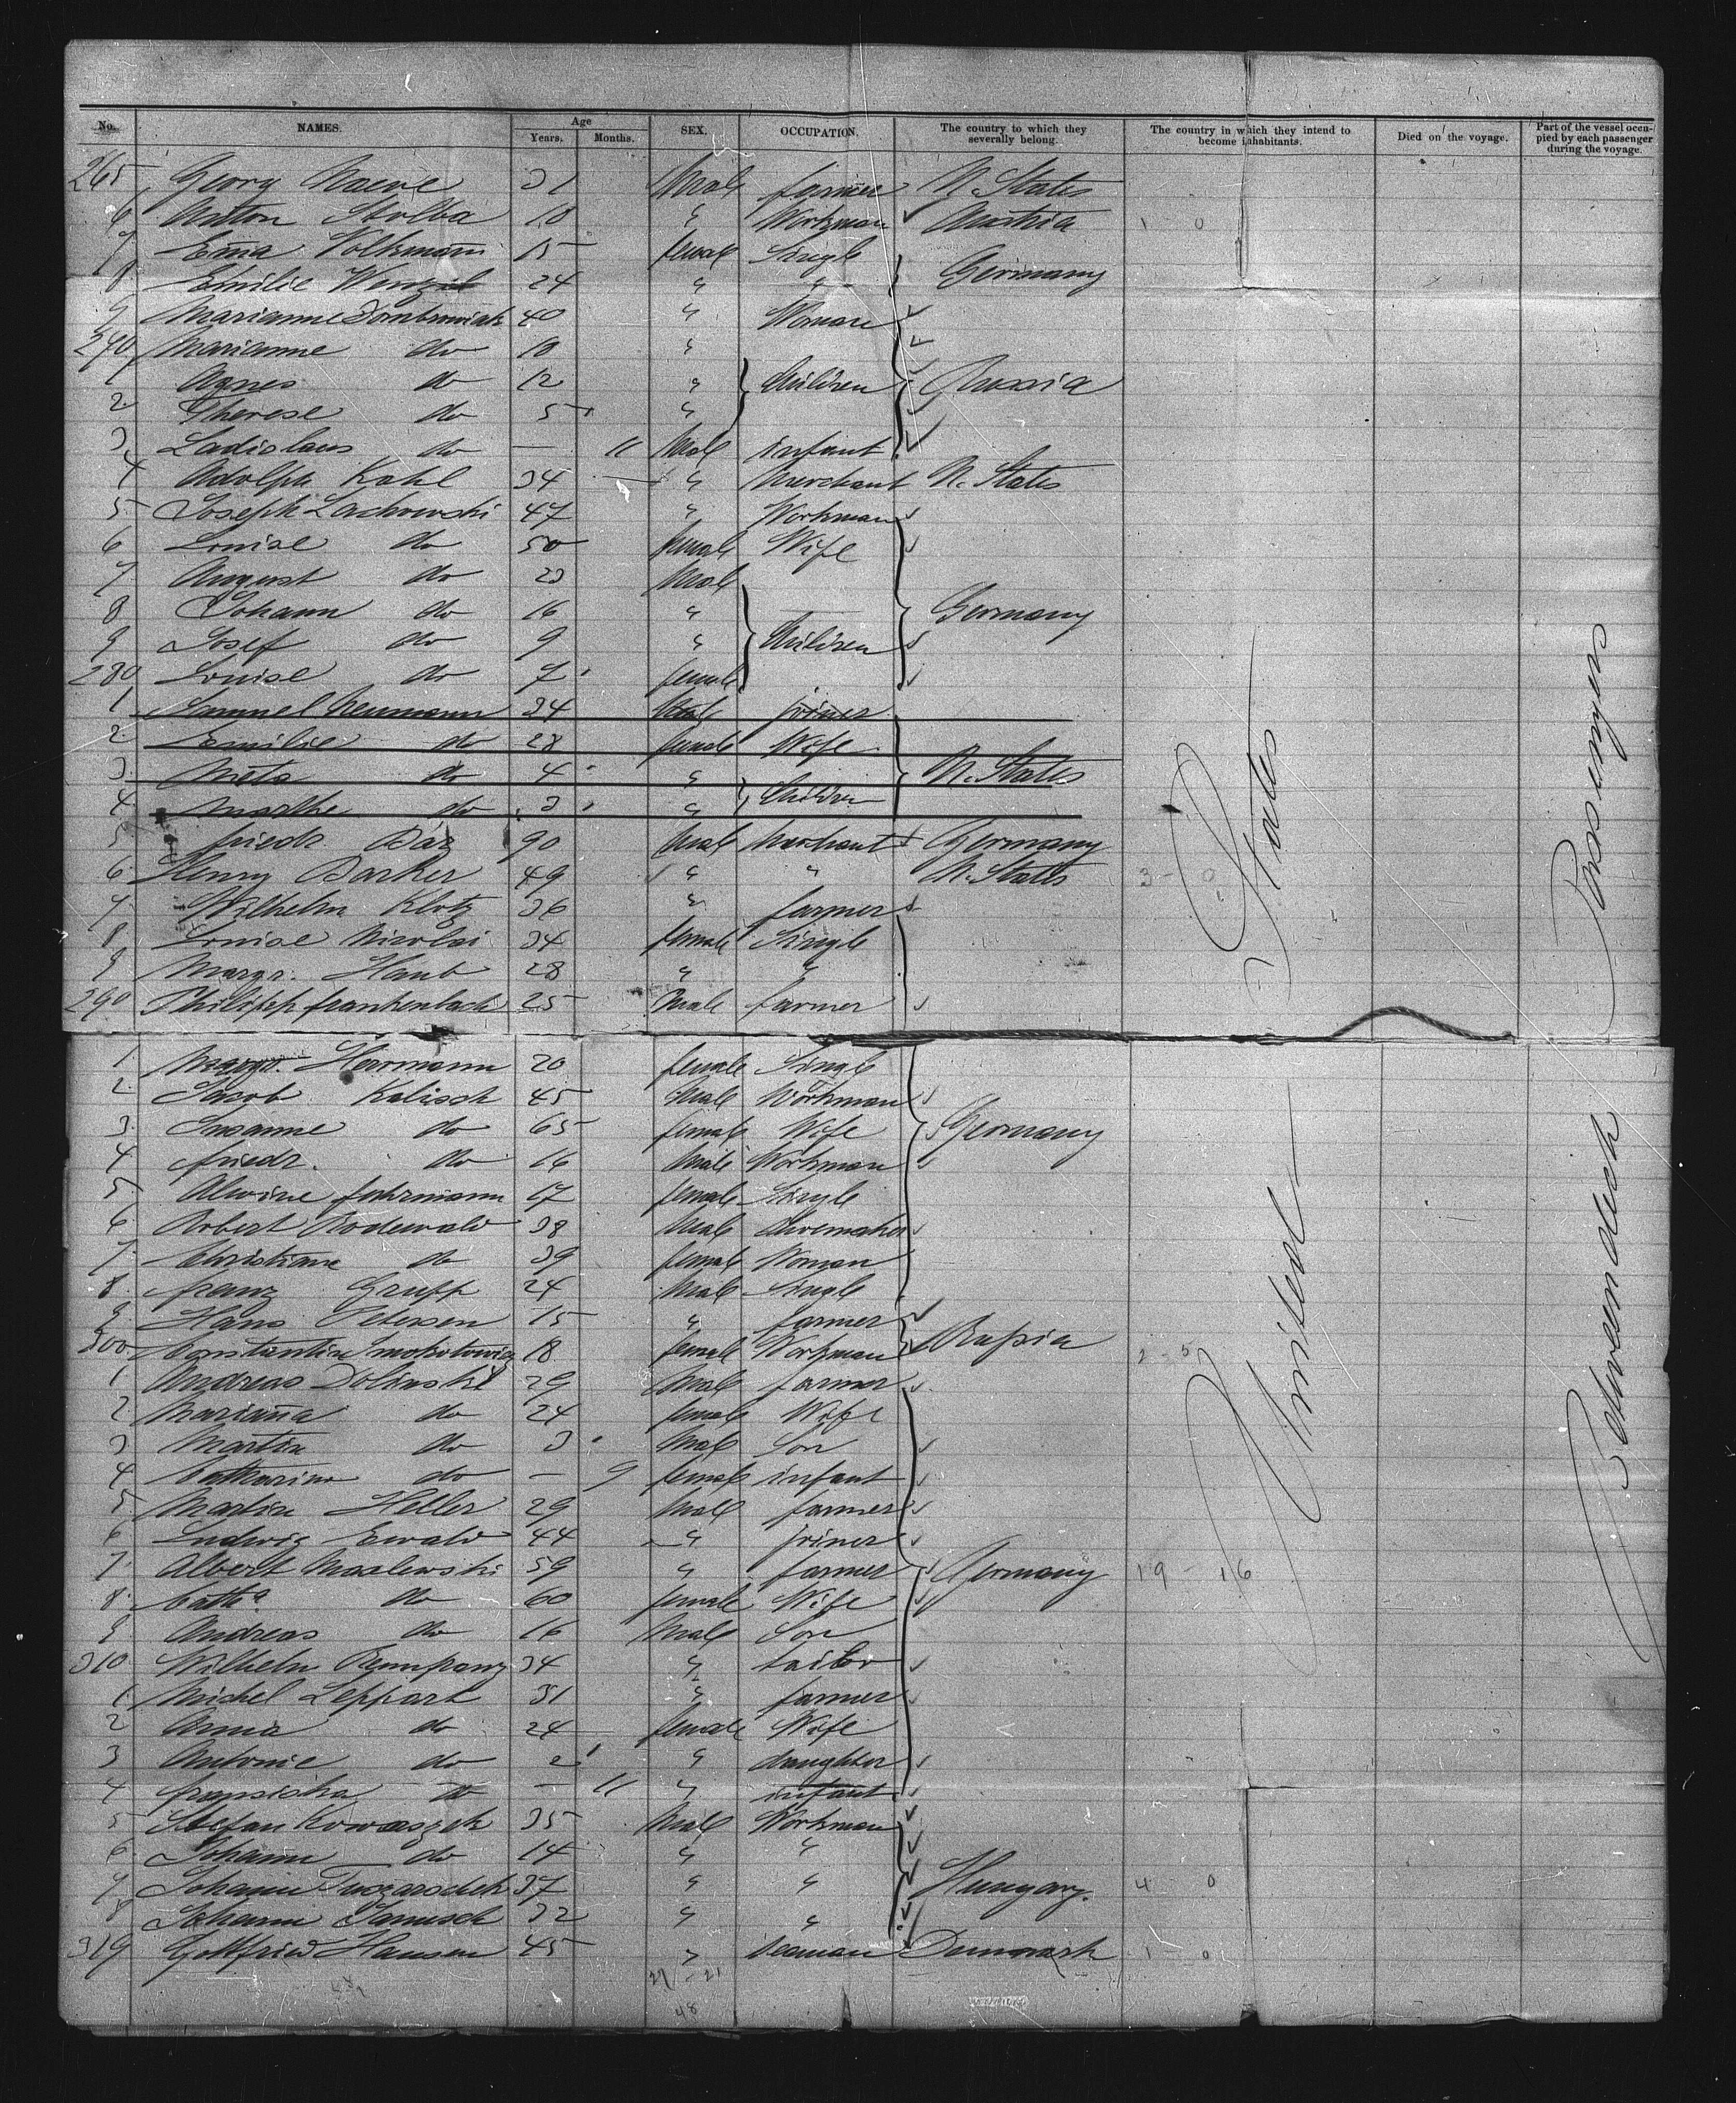 No. NAMES. Age Years. Months. SEX. OCCUPATION. The country to which they severally belong. The country in which they intend to become inhabitants. Died on the voyage. Part of the vessel occupied by each passenger during the voyage.
265 Georg 31 Male farmer U. States
6 Anton Stolba 18 " Workman Austria 1 0
7 Ema Volkmann 15 female Single
8 Emilie 24 " " Germany
9 Marianne 40 " Woman
270 Marianne do 18 "
1 Agnes do 12 " Children Russia
2 Therese do 5 "
3 Ladislaus do — 11 Male infant
4 Adolph Kahl 34 — " Merchant U. States
5 Joseph Lachowski 47 " Workman
6 Louise do 50 female Wife
7 August do 23 Male
8 Johann do 16 " Germany
9 Josef do 9 " Children
280 Louise do 7 female
1 Samuel Neumann 34 Male joiner
2 Emilie do 28 female Wife
3 Meta do 4 " U. States
4 Marthe do 3 " Children
5 friedr. Bär 90 Male Merchant Germany
6 Henry Barker 49 " " U. States 3 - 0
7 Wilhelm Klotz 36 " farmer
8 Louise Nicolai 34 female Single
9 Margr. Haub 28 " "
290 Philipp frankenbach 25 Male farmer
1 Margr. Herrmann 20 female Single
2 Jacob Kalisch 45 Male Workman
3 Susanne do 65 female Wife Germany
4 friedr. do 16 Male Workman
5 Alwine fuhrmann 17 female Single
6 Robert Rodewald 38 Male shoemaker
7 Christiane do 39 female Woman
8 franz Grupp 24 Male Single
9 Hans Petersen 15 " farmer
300 Constantin 18 female Workman Russia 2 - 5
1 Andreas Dolinski 29 Male farmer
2 Mariana do 24 female Wife
3 Martin do 3 Male Son
4 Catharina do — 9 female infant
5 Martin Heller 29 Male farmer
6 Ludwig Ewald 44 " joiner
7 Albert 59 " farmer Germany 19 - 16
8 Catha do 60 female Wife
9 Andreas do 16 Male Son
310 Wilhelm 34 " tailor
1 Michel Leppart 31 " farmer
2 Anna do 24 female Wife
3 Antonie do 2 " daughter
4 do — 11 " infant
5 Stefan 35 Male Workman
6 Johann do 14 " "
7 Johann 37 " " Hungary. 4 - 0
8 Johann Janisch 32 " "
319 Gottfried Hansen 45 " seaman Denmark 1 - 0
27 - 21
48
United States
Between deck Passengers